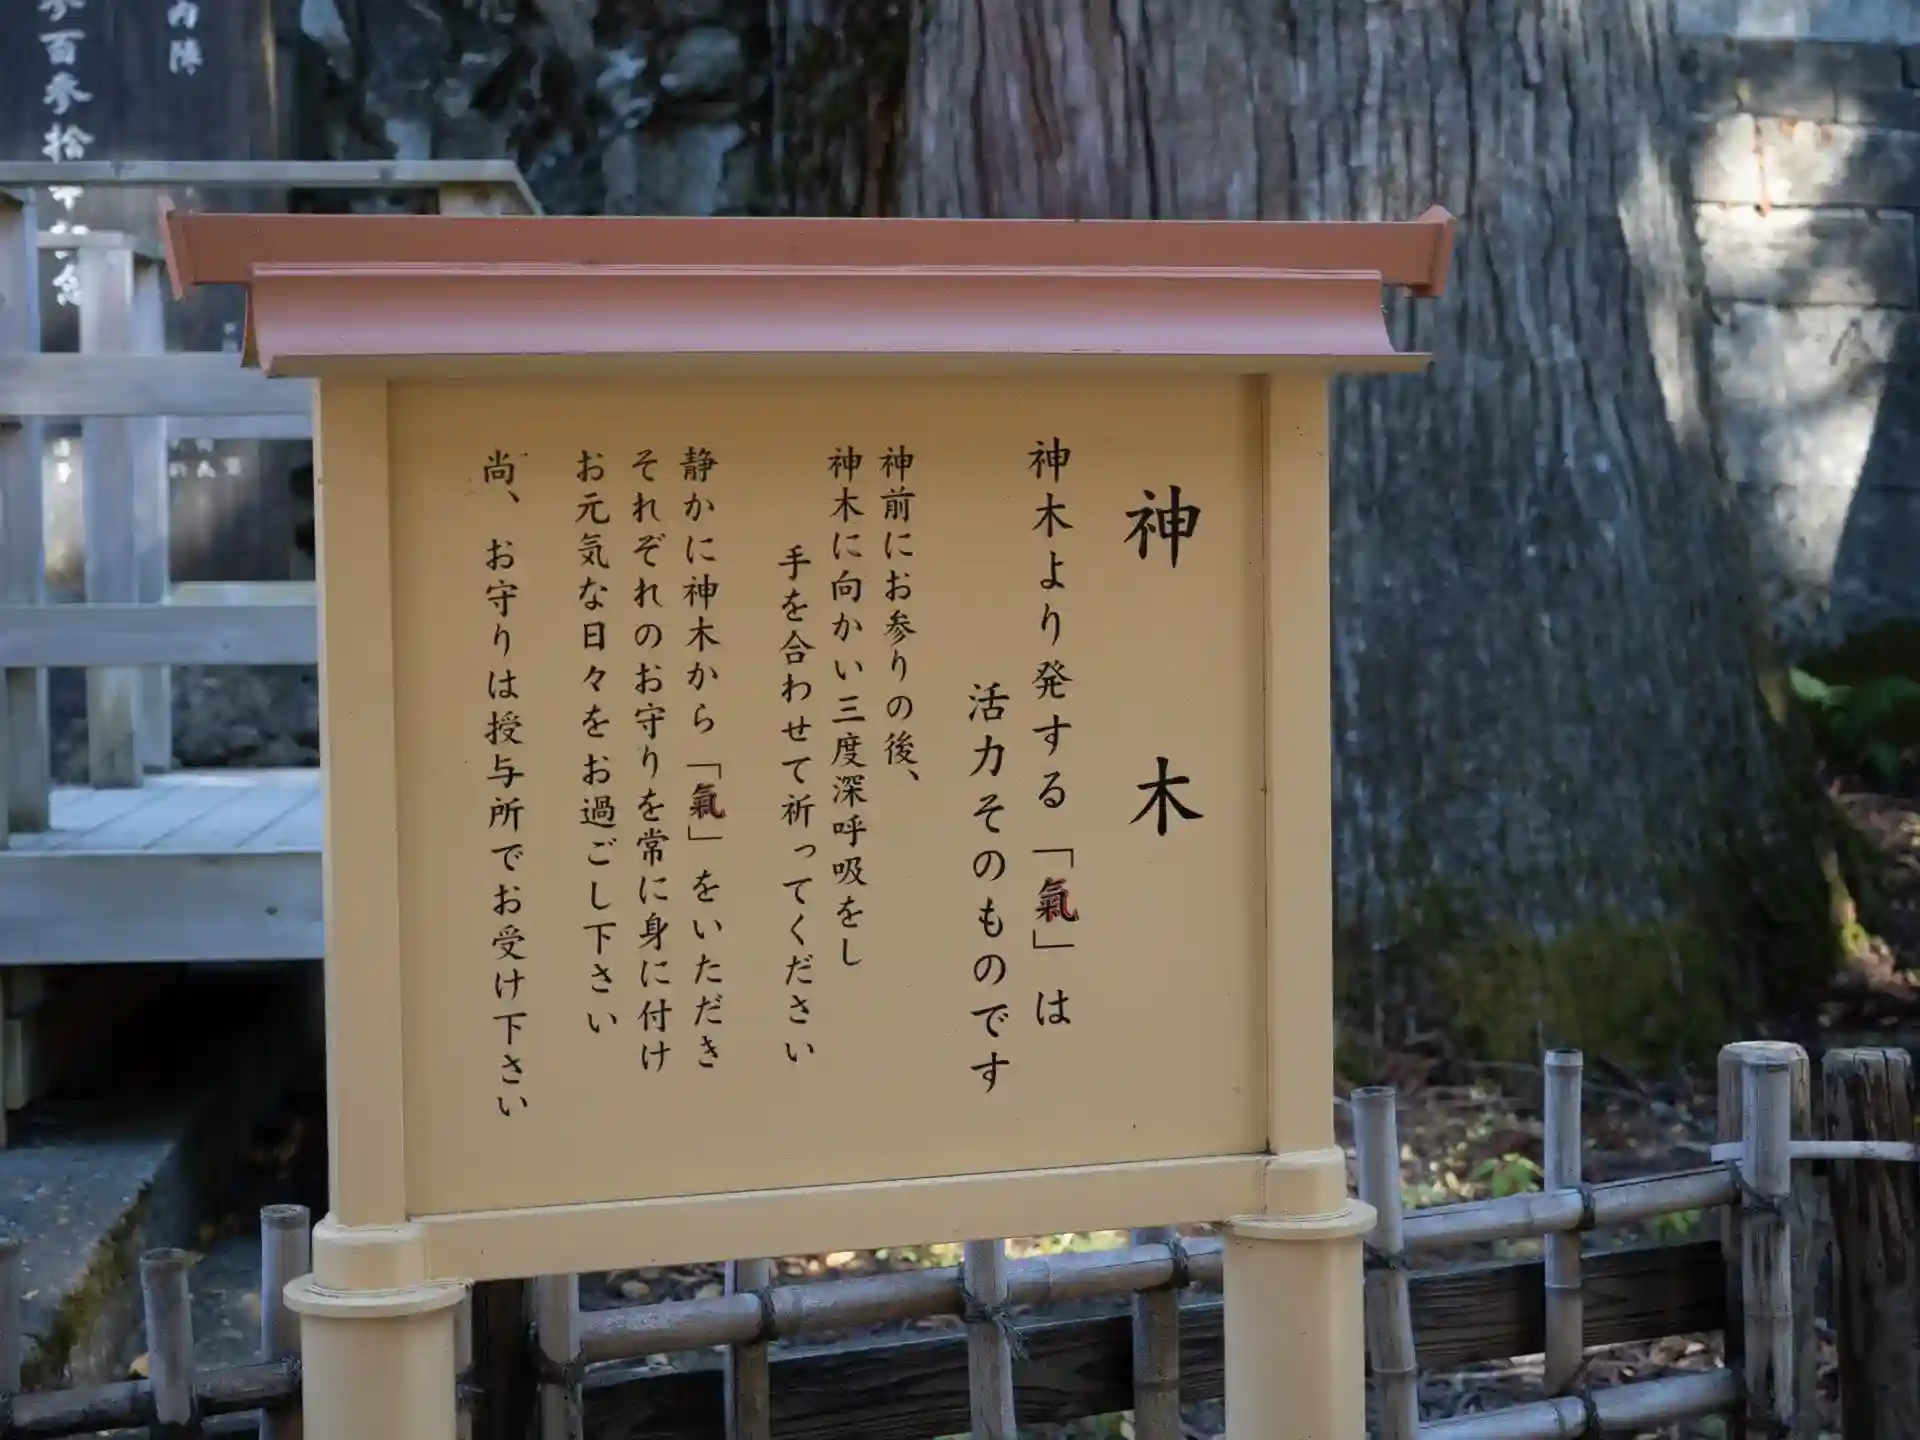 神木
神木より発する「氣」は
活力そのものです
神前にお参りの後、
神木に向かい三度深呼吸をし
手を合わせて祈ってください
静かに神木から「氣」をいただき
それぞれのお守りを常に身に付け
お元気な日々をお過ごし下さい
尚、お守りは授与所でお受け下さい
内陣
百参拾